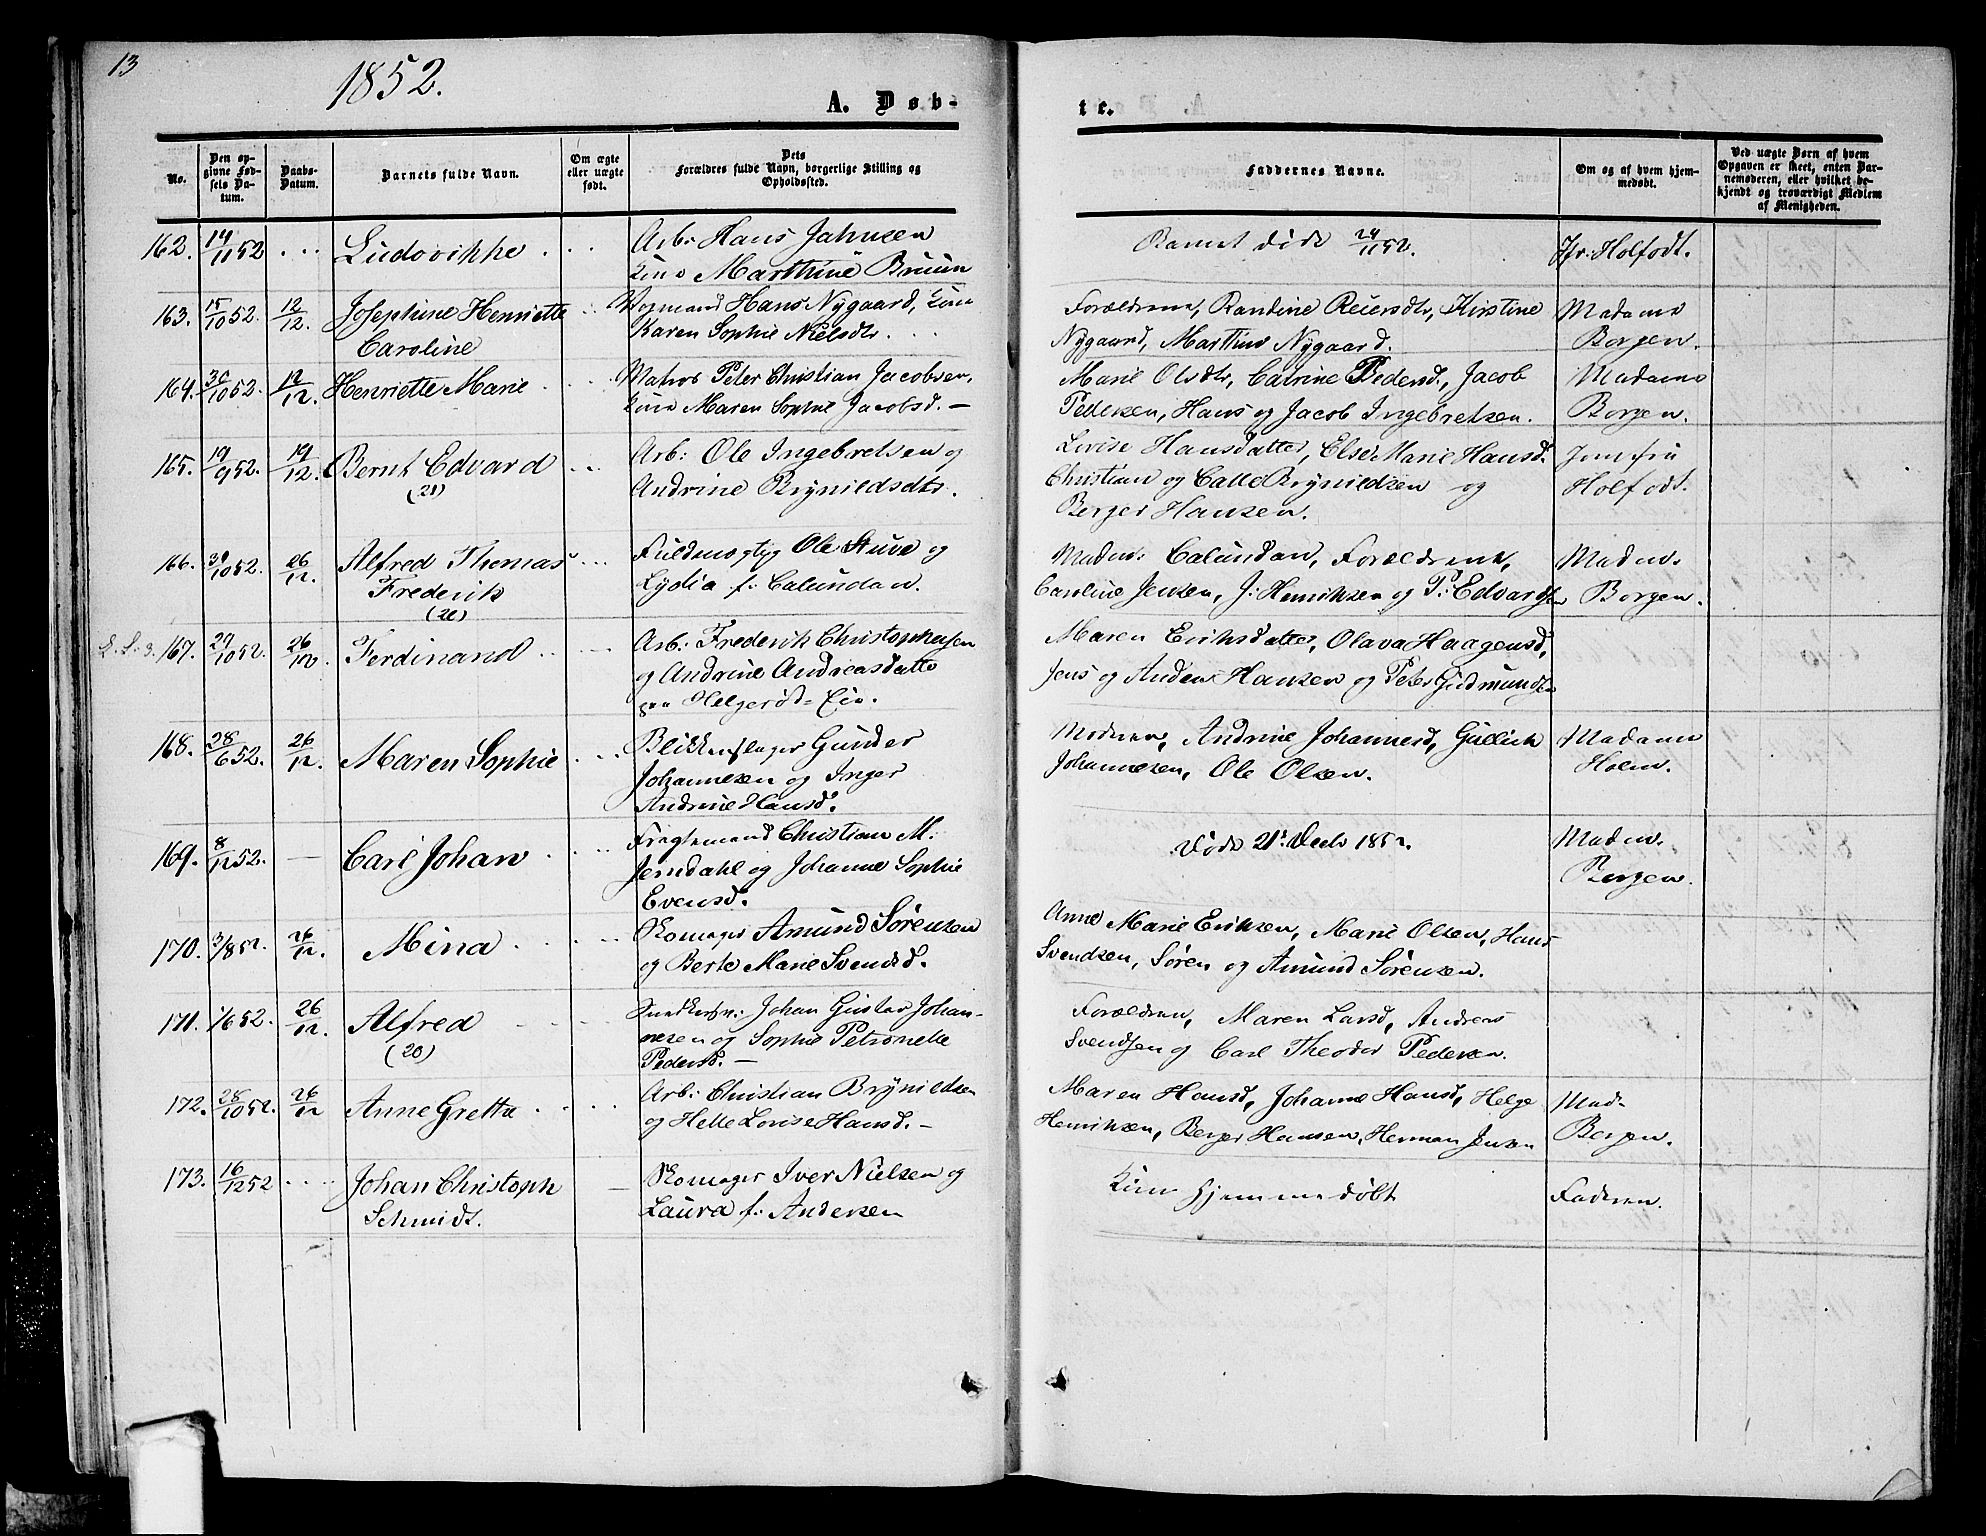 13
1852.
A. Døb-
te.
No.
Den op-
givne Fød-
sels Da-
tum.
Daabs-
Datum.
Barnets fulde Navn.
Om ægte
eller uægte
født.
Dets
Forældres fulde Navn, borgerlige Stilling og
Opholdssted.
Faddernes Navne.
Om og af hvem hjem-
medøbt.
Ved uægte Børn af hvem
Opgaven er skeet, enten Bar-
nemoderen, eller hvilket be-
kjendt og troværdigt Medlem
af Menigheden.
162. 14/11 52 ... Ludovikke . . . Arb: Hans Jahnsen
Marthine Bruun
Barnet døde 24/11 52. Jfr: Holfodt.
163. 15/10 52. 12/12. Josephine Henriette
Caroline
Hans Nygaard,
Karen Sophie Nielsdtr. . . .
Forældrene, Randine Reiersdtr, Kirstine
Nygaard, Marthin Nygaard.
Madame
Borgen.
164. 30/10 52. 12/12. Henriette Marie . . . Matros Peter Christian Jacobsen,
Maren Sophie Jacobsd. –
Marie Olsdtr, Catrine Pedersd., Jacob
Pedersen, Hans og Jacob Ingebretsen.
Madame
Borgen.
165. 19/9 52. 19/12. Bernt Edvard
(21)
Arb: Ole Ingebretsen og
Andrine Brynildsdtr.
Lovise Hansdatter, Else Marie Hansd.
Christian og Calle Brynildsen og
Berger Hansen.
Jomfru
Holfodt.
166. 10 52. 26/12. Alfred Thomas
Frederik
(20)
Ole Stuve og
Lydia f: Calundan.
Madm: Calundan, Forældrene,
Caroline Jensen, J: Henriksen og P: Edvardsen
Madm.
Borgen.
167. 29/10 52. 26/12. Ferdinand . . . Arb: Frederik Christophersen
og Andrine Andreasdatter
paa Helgerød-Eie.
Maren Eriksdatter, Olava Haagensd,
Jens og Anders Hansen og Peter Gudmundsen
168. 28/6 52. 26/12. Maren Sophie . . . Blikkenslager Gunder
Johannesen og Inger
Andrine Hansd.
Moderen, Andrine Johannesd, Gullick
Johannesen, Ole Olsen.
Madame
Holm.
169. 8/12 52. – Carl Johan . . . Christian M.
Jerndahl og Johanne Sophie
Evensd.
Døde 21de Decb 1852. Madm.
Borgen.
170. 3/8 52. 26/12. Mina . . . Skomager Amund Sørensen
og Berte Marie Svendsd.
Anne Marie Eriksen, Marie Olsen, Hans
Svendsen, Søren og Amund Sørensen.
171. 1/6 52. 26/12. Alfred . . .
(20)
Johan Gustav Johan-
nesen og Sophie Petronelle
Pedersd. –
Forældren, Maren Larsd, Andreas
Svendsen og Carl Theodor Pedersen.
172. 28/10 52. 26/12 Anne Gretta . . . Arb: Christian Brynildsen
og Helle Lovise Hansd. –
Maren Hansd, Johanne Hansd, Helge
Henriksen, Berger Hansen, Herman Jensen
Mad.
Borgen.
173. 16/12 52 . . . Johan Christoph
Schmidt.
Skomager Iver Nielsen og
Laura f: Andersen
Kun hjemmedøbt Faderen.